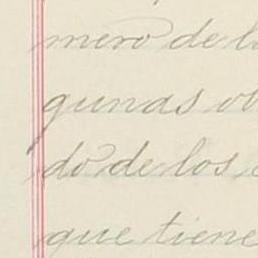 mero de l
gunas ob
do de los
que tiene